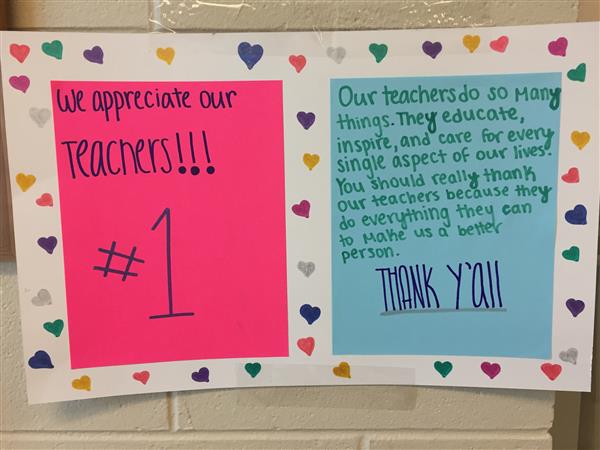 We appreciate our
Teachers!!!
#1
Our teachers do so many
things. They educate,
inspire, and care for every
single aspect of our lives.
You should really thank
our teachers because they
do everything they can
to make us a better
person.
THANK Y'all